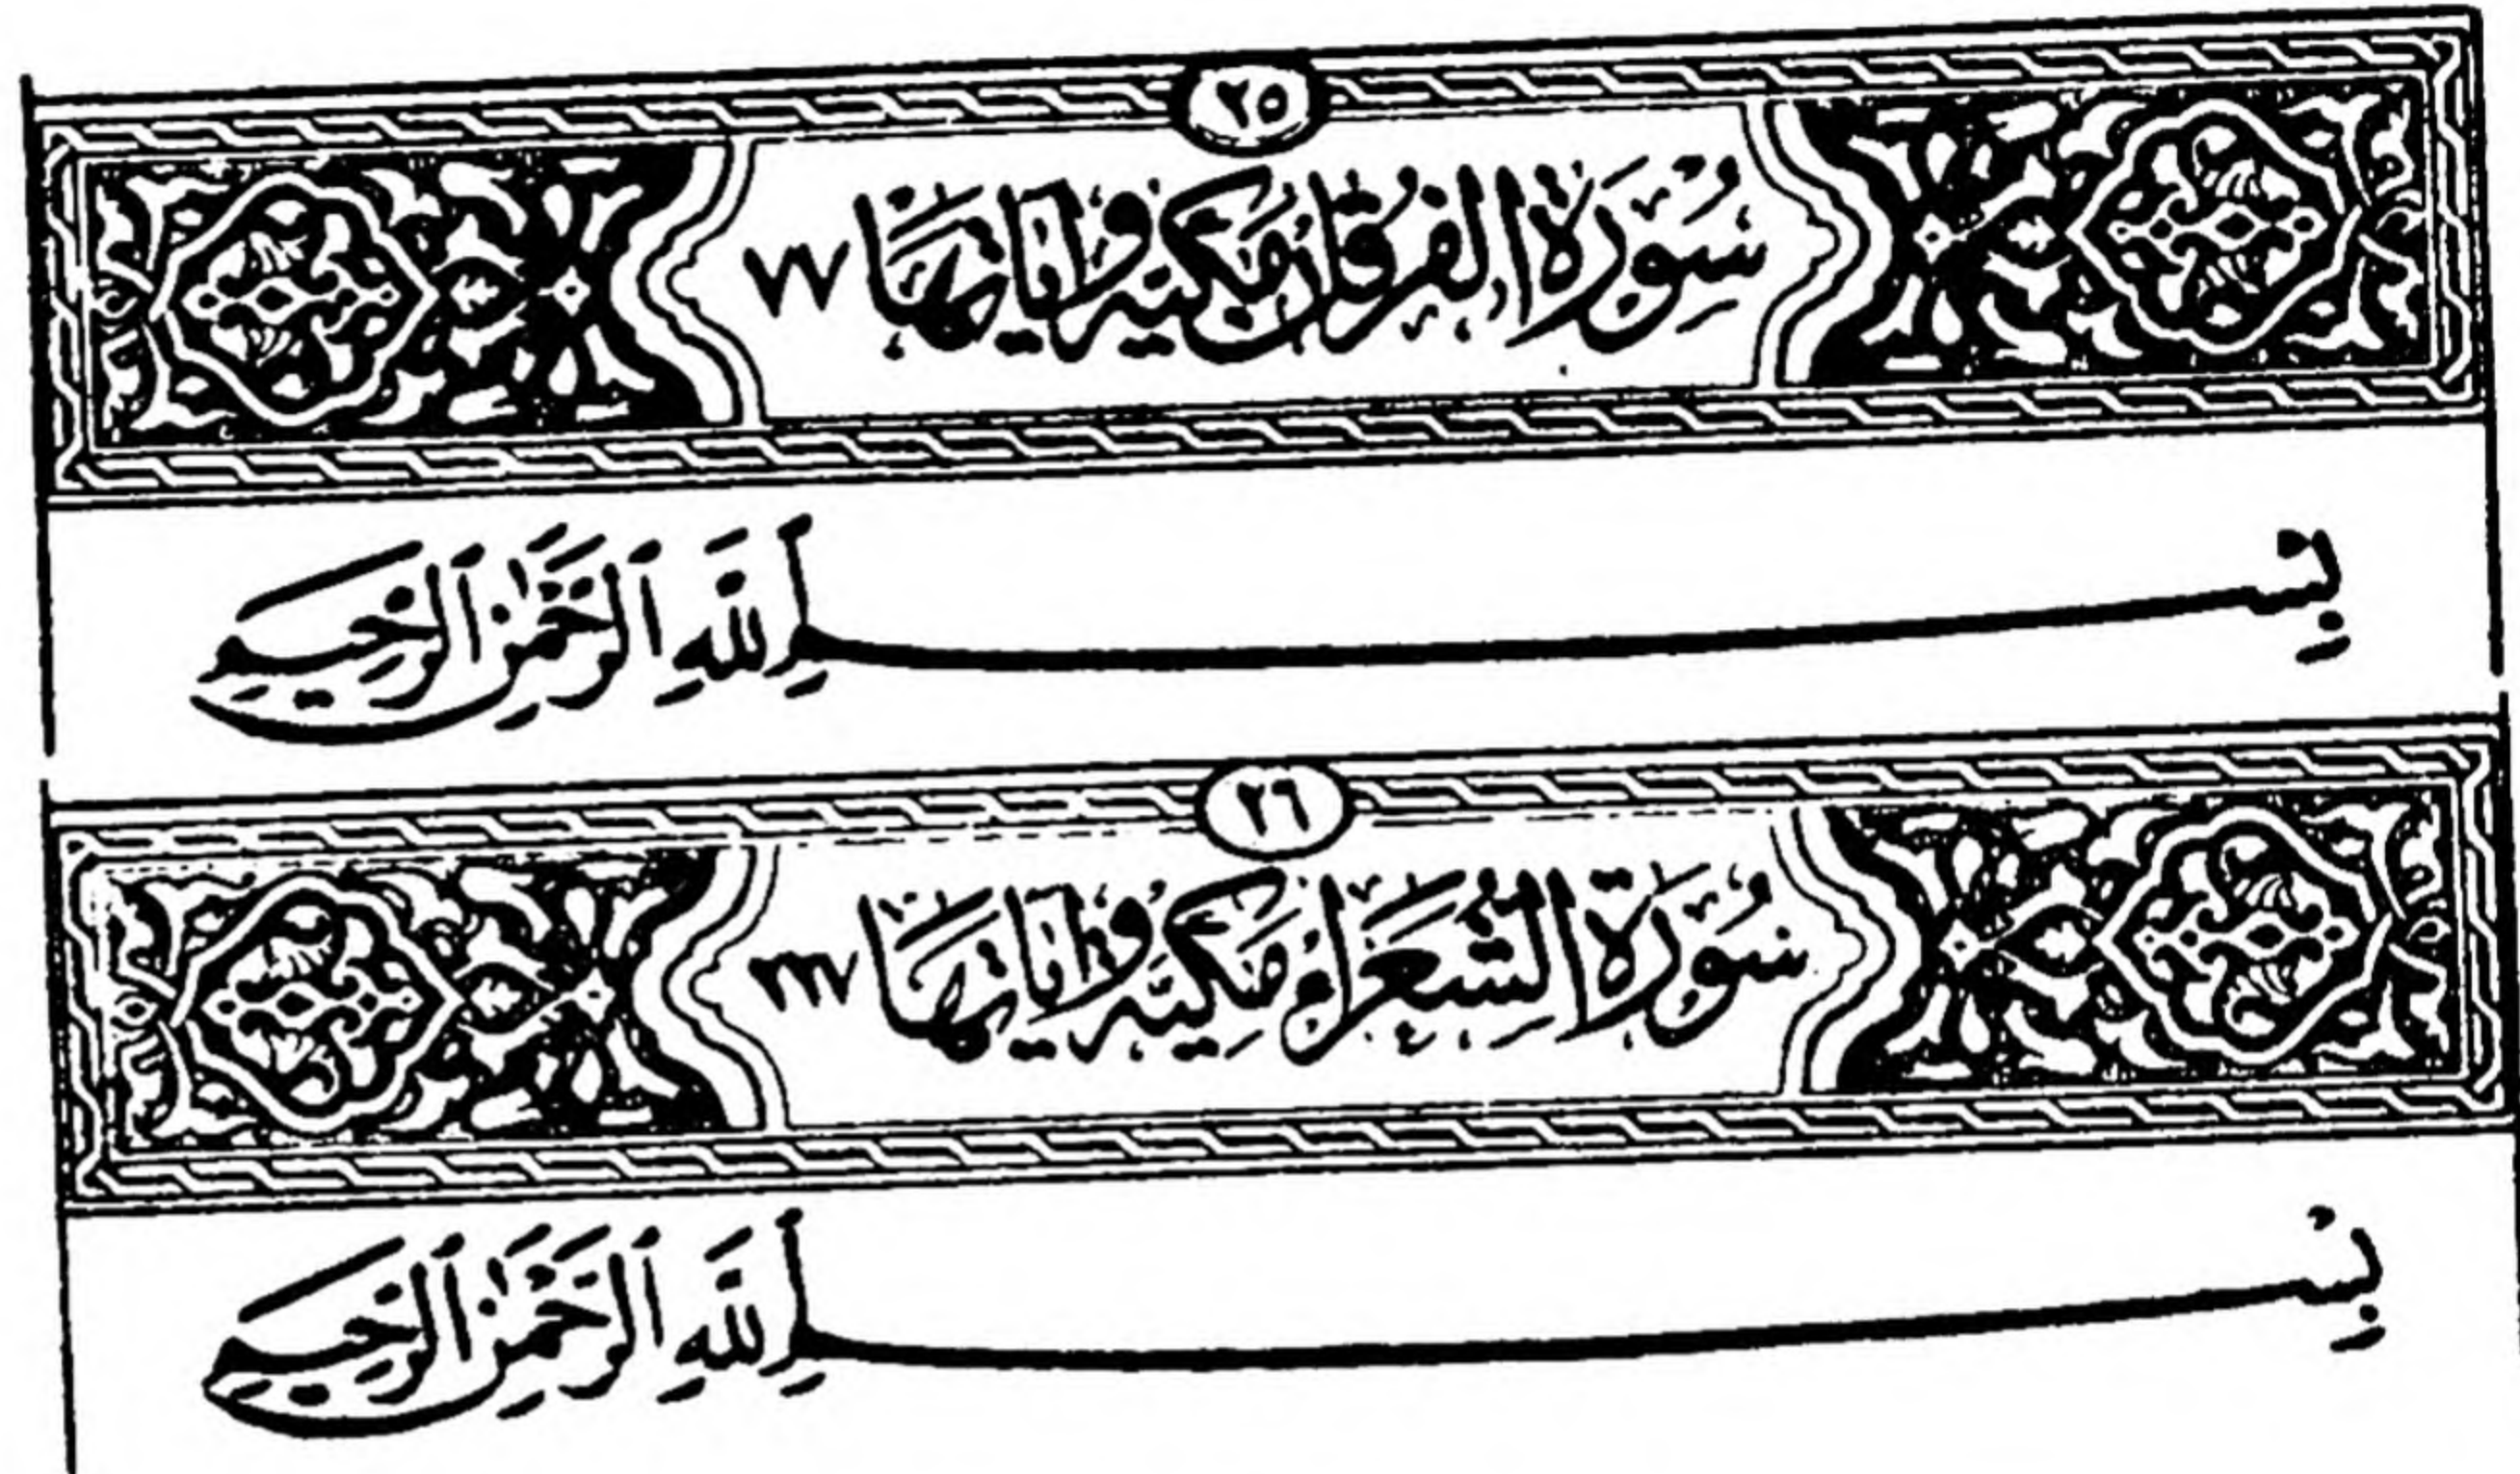 ٢٥
سُورَةُ الفُرْقَانِ مَكِّيَّةٌ وَآيَاتُهَا ٧٧
بِسْمِ ٱللَّهِ ٱلرَّحْمَٰنِ ٱلرَّحِيمِ
٢٦
سُورَةُ الشُّعَرَاءِ مَكِّيَّةٌ وَآيَاتُهَا ٢٢٧
بِسْمِ ٱللَّهِ ٱلرَّحْمَٰنِ ٱلرَّحِيمِ